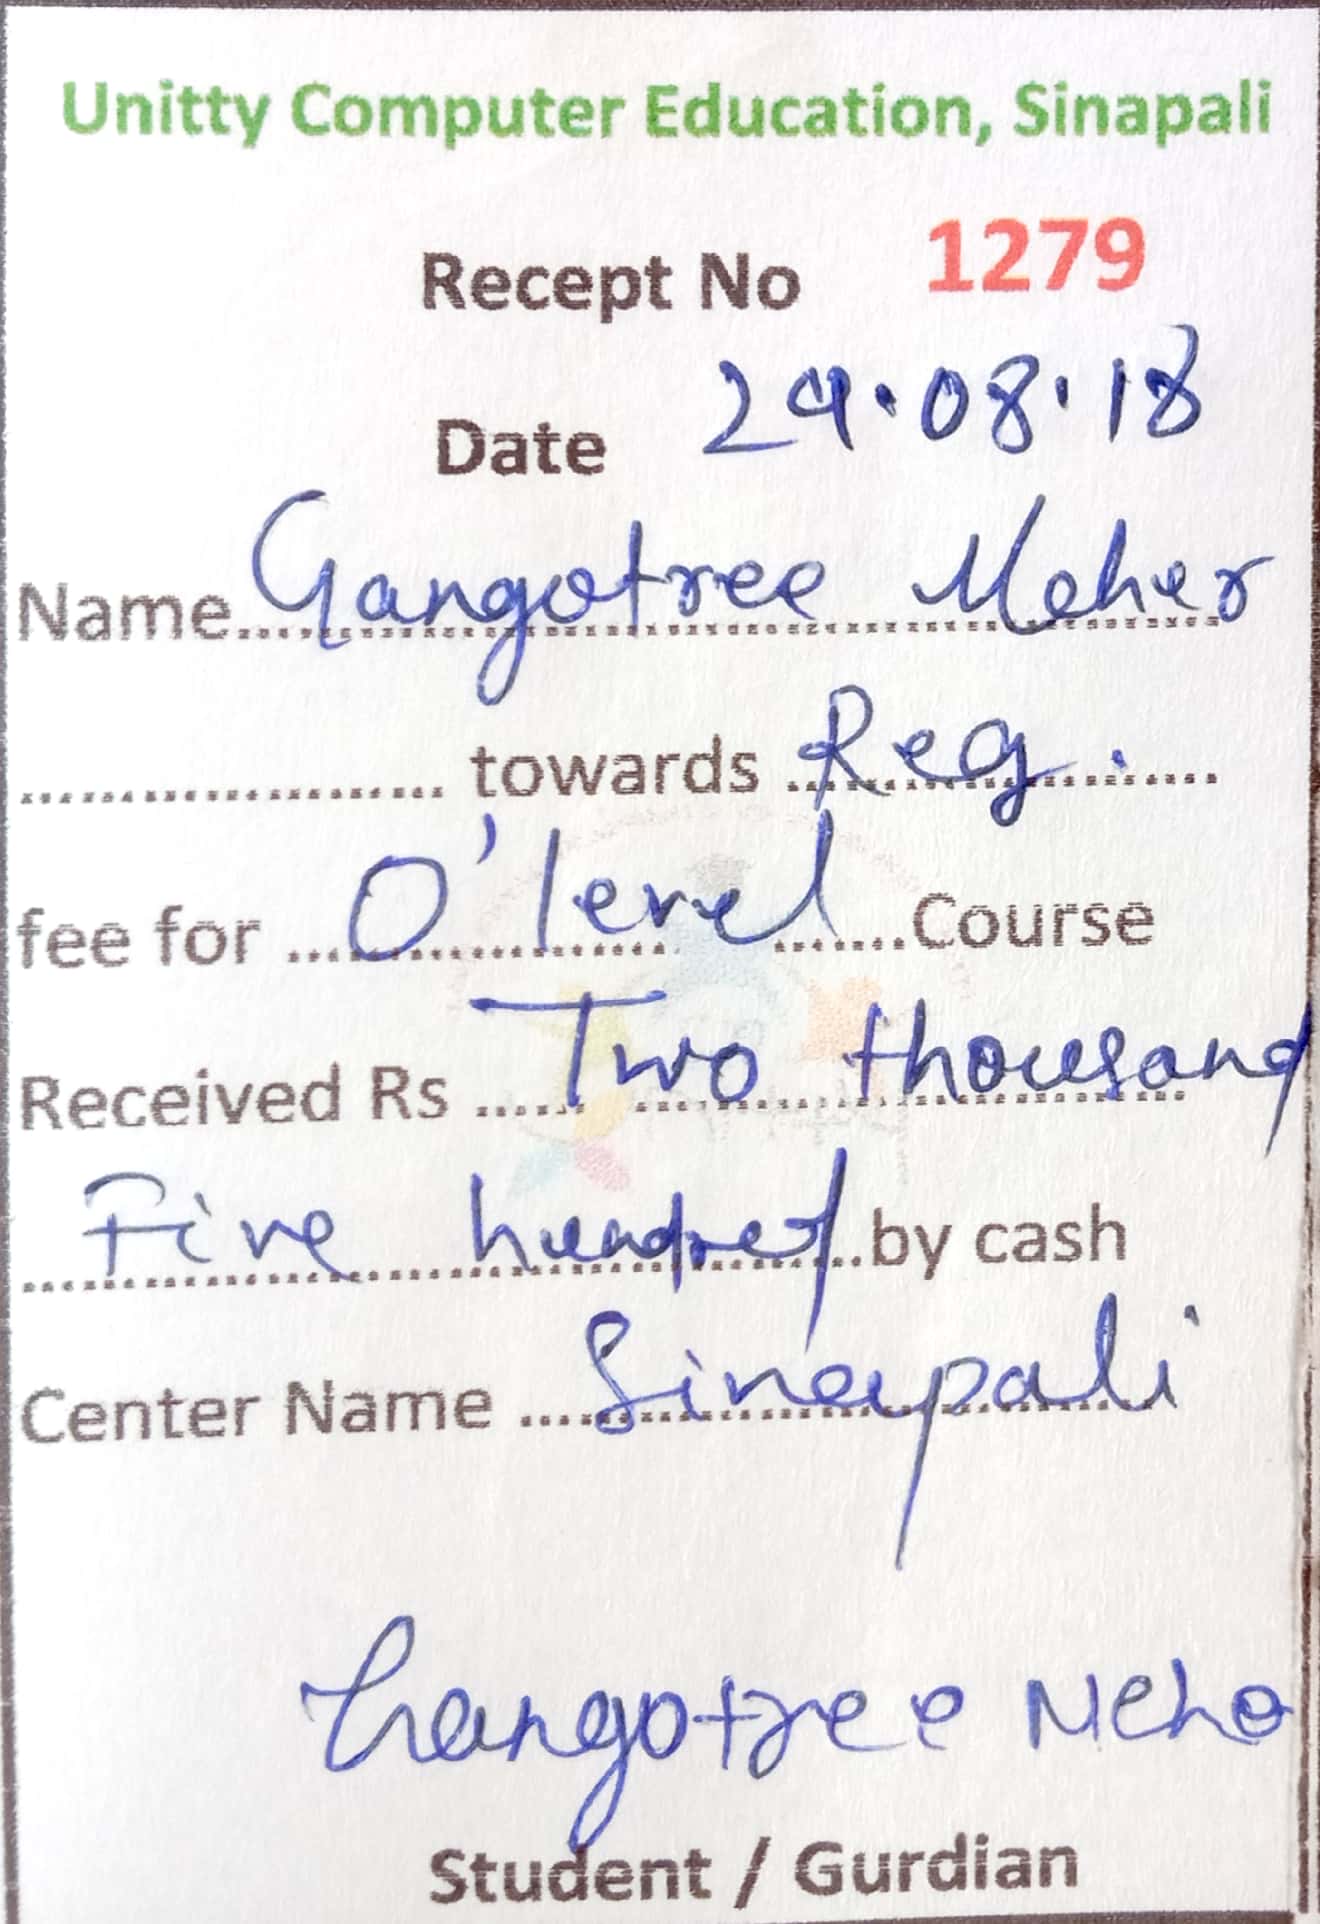 Unitty Computer Education, Sinapali
Recept No 1279
Date 29.08.18
Name Gangotree Meher
towards Reg.
fee for O'level Course
Received Rs Two thousand
Five hundred by cash
Center Name Sinapali
Gangotree Mehe
Student / Gurdian